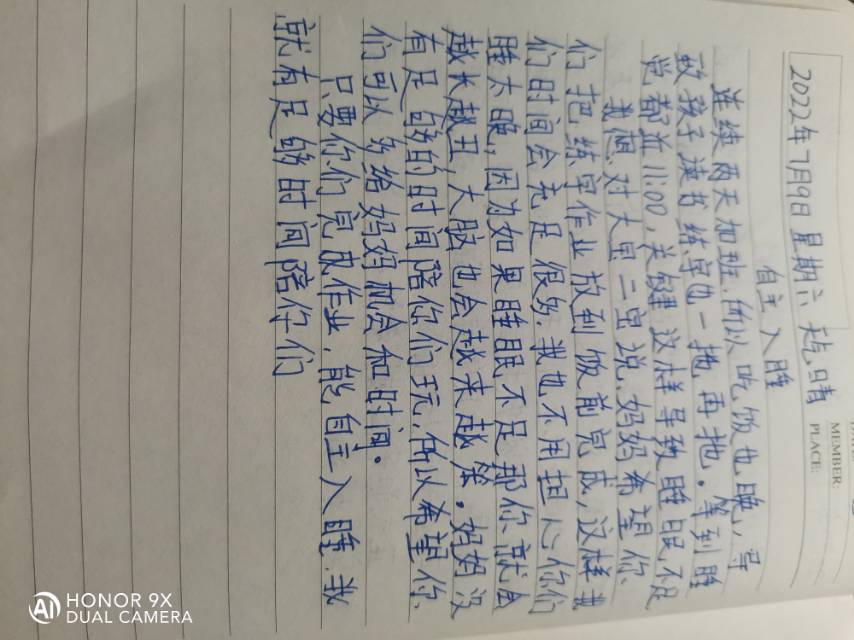 MEMBER:
PLACE:
2022年7月9日 星期六 天气:晴
自主入睡
连续两天加班,所以吃饭也晚,导
致孩子读书练字也一拖再拖。等到睡
觉都近11:00,关键这样导致睡眠不足
我想对大宝二宝说,妈妈希望你
们把练字作业放到饭前完成,这样我
们时间会充足很多,我也不用担心你们
睡太晚,因为如果睡眠不足那你就会
越长越丑,大脑也会越来越笨。妈妈没
有足够的时间陪你们玩,所以希望你
们可以多给妈妈机会和时间。
只要你们完成作业,能自主入睡,我
就有足够时间陪伴你们
HONOR 9X
DUAL CAMERA